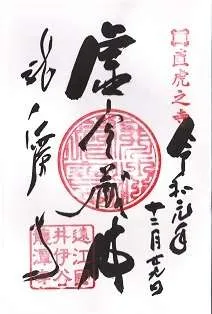 直虎之寺
令和元年
十二月廿九日
虚空蔵佛
龍潭寺
遠江國
井伊谷
龍潭寺